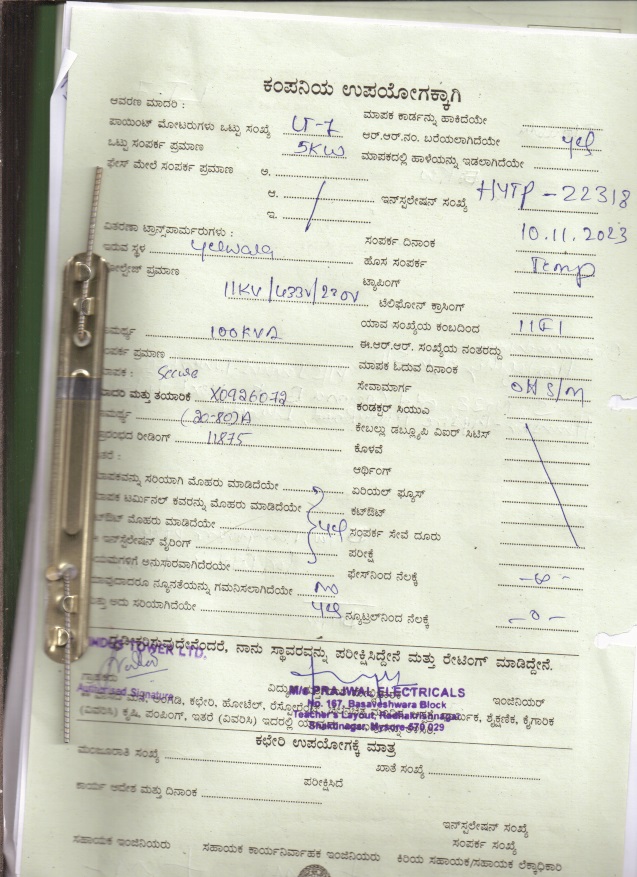 ಕಂಪನಿಯ ಉಪಯೋಗಕ್ಕಾಗಿ
ಆವರಣ ಮಾದರಿ : ಮಾಪಕ ಕಾರ್ಡನ್ನು ಹಾಕಿದೆಯೇ
ಪಾಯಿಂಟ್ ಮೋಟರುಗಳು ಒಟ್ಟು ಸಂಖ್ಯೆ LT-7 ಆರ್.ಆರ್.ನಂ. ಬರೆಯಲಾಗಿದೆಯೇ yes
ಒಟ್ಟು ಸಂಪರ್ಕ ಪ್ರಮಾಣ 5KW ಮಾಪಕದಲ್ಲಿ ಹಾಳೆಯನ್ನು ಇಡಲಾಗಿದೆಯೇ
ಫೇಸ್ ಮೇಲೆ ಸಂಪರ್ಕ ಪ್ರಮಾಣ ಅ.
ಆ. ಇನ್‌ಸ್ಟಲೇಷನ್ ಸಂಖ್ಯೆ HYTP-22318
ಇ.
ವಿತರಣಾ ಟ್ರಾನ್ಸ್‌ಫಾರ್ಮರುಗಳು : ಸಂಪರ್ಕ ದಿನಾಂಕ 10.11.2023
ಇರುವ ಸ್ಥಳ yelwala ಹೊಸ ಸಂಪರ್ಕ Temp
ಪ್ರಮಾಣ 11KV/433V/230V ಟ್ಯಾಪಿಂಗ್
ಟೆಲಿಫೋನ್ ಕ್ರಾಸಿಂಗ್
100KVA ಯಾವ ಸಂಖ್ಯೆಯ ಕಂಬದಿಂದ
ಸಂಪರ್ಕ ಪ್ರಮಾಣ ಈ.ಆರ್.ಆರ್. ಸಂಖ್ಯೆಯ ನಂತರದ್ದು
ಮಾಪಕ : Secure ಮಾಪಕ ಓದುವ ದಿನಾಂಕ
ಮಾದರಿ ಮತ್ತು ತಯಾರಿಕೆ X0926072 ಸೇವಾಮಾರ್ಗ OH S/M
(20-80)A ಕಂಡಕ್ಟರ್ ಸಿಯುಎ
ರೀಡಿಂಗ್ 11875 ಕೇಬಲ್ಲು ಡಬ್ಲ್ಯೂಪಿ ವಿಐರ್ ಸಿಟಿಸ್
ಕೊಳವೆ
ಇತರೆ : ಆರ್ಥಿಂಗ್
ಮಾಪಕವನ್ನು ಸರಿಯಾಗಿ ಮೊಹರು ಮಾಡಿದೆಯೇ ಏರಿಯಲ್ ಫ್ಯೂಸ್
ಮಾಪಕ ಟರ್ಮಿನಲ್ ಕವರನ್ನು ಮೊಹರು ಮಾಡಿದೆಯೇ ಕಟ್‌ಔಟ್
ಕಟ್‌ಔಟ್ ಮೊಹರು ಮಾಡಿದೆಯೇ yes ಸಂಪರ್ಕ ಸೇವೆ ದೂರು
ಇನ್‌ಸ್ಟಲೇಷನ್ ವೈರಿಂಗ್ ಪರೀಕ್ಷೆ
ನಿಯಮಗಳಿಗೆ ಅನುಸಾರವಾಗಿದೆಯೇ ಫೇಸ್‌ನಿಂದ ನೆಲಕ್ಕೆ
ಯಾವುದಾದರೂ ನ್ಯೂನತೆಯನ್ನು ಗಮನಿಸಲಾಗಿದೆಯೇ NO
ಮತ್ತು ಅದು ಸರಿಯಾಗಿದೆಯೇ yes ನ್ಯೂಟ್ರಲ್‌ನಿಂದ ನೆಲಕ್ಕೆ -0-
ನಾನು ಸ್ಥಾವರವನ್ನು ಪರೀಕ್ಷಿಸಿದ್ದೇನೆ ಮತ್ತು ರೇಟಿಂಗ್ ಮಾಡಿದ್ದೇನೆ.
INDUS TOWER LTD.
ಗ್ರಾಹಕರು ಇಂಜಿನಿಯರ್
Authorised Signature
M/s PRAJWAL ELECTRICALS
No. 167, Basaveshwara Block
Teacher's Layout, Radhakrishnanagar
Shaktinagar, Mysore-570 029
ಅಂಗಡಿ, ಕಛೇರಿ, ಹೋಟೆಲ್, ಶೈಕ್ಷಣಿಕ, ಕೈಗಾರಿಕ
(ವಿವರಿಸಿ) ಕೃಷಿ, ಪಂಪಿಂಗ್, ಇತರೆ (ವಿವರಿಸಿ) ಇದರಲ್ಲಿ
ಕಛೇರಿ ಉಪಯೋಗಕ್ಕೆ ಮಾತ್ರ
ಮಂಜೂರಾತಿ ಸಂಖ್ಯೆ ಖಾತೆ ಸಂಖ್ಯೆ
ಪರೀಕ್ಷಿಸಿದೆ
ಕಾರ್ಯ ಆದೇಶ ಮತ್ತು ದಿನಾಂಕ
ಇನ್‌ಸ್ಟಲೇಷನ್ ಸಂಖ್ಯೆ
ಸಂಪರ್ಕ ಸಂಖ್ಯೆ
ಸಹಾಯಕ ಇಂಜಿನಿಯರು ಸಹಾಯಕ ಕಾರ್ಯನಿರ್ವಾಹಕ ಇಂಜಿನಿಯರು ಕಿರಿಯ ಸಹಾಯಕ/ಸಹಾಯಕ ಲೆಕ್ಕಾಧಿಕಾರಿ